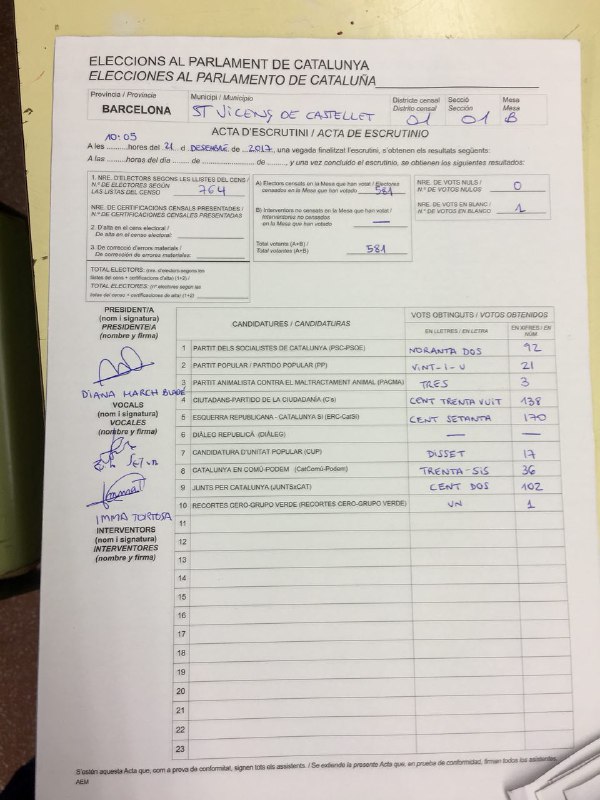 ELECCIONS AL PARLAMENT DE CATALUNYA
ELECCIONES AL PARLAMENTO DE CATALUÑA
Província / Provincie
BARCELONA
Municipi / Municipio
ST VICENÇ DE CASTELLET
Districte censal
Distrito censal
01
Secció
Sección
01
Mesa
Mesa
B
ACTA D'ESCRUTINI / ACTA DE ESCRUTINIO
10:05
A les ..........hores del 21 d DESEMBRE de ..2017, una vegada finalitzat l'escrutini, s'obtenen els resultats següents:
A las ..........horas del día ........ de ................ de ........, y una vez concluido el escrutinio, se obtienen los siguientes resultados:
1. NRE. D'ELECTORS SEGONS LES LLISTES DEL CENS /
N.º DE ELECTORES SEGÚN
LAS LISTAS DEL CENSO
764
NRE. DE CERTIFICACIONS CENSALS PRESENTADES /
N.º DE CERTIFICACIONES CENSALES PRESENTADAS
2. D'alta en el cens electoral /
De alta en el censo electoral:
3. De correcció d'errors materials /
De corrección de errores materiales:
TOTAL ELECTORS: (nre. d'electors segons les
llistes del cens + certificacions d'alta) (1+2) /
TOTAL ELECTORES: (nº electores según las
listas del censo + certificaciones de alta) (1+2)
A) Electors censats en la Mesa que han votat / Electores
censados en la Mesa que han votado
581
B) Interventors no censats en la Mesa que han votat /
Interventores no censados
en la Mesa que han votado
—
Total votants (A+B) /
Total votantes (A+B)
581
NRE. DE VOTS NULS /
N.º DE VOTOS NULOS
0
NRE. DE VOTS EN BLANC /
N.º DE VOTOS EN BLANCO
1
PRESIDENT/A
(nom i signatura)
PRESIDENTE/A
(nombre y firma)
DIANA MARCH
VOCALS
(nom i signatura)
VOCALES
(nombre y firma)
IMMA TORTOSA
INTERVENTORS
(nom i signatura)
INTERVENTORES
(nombre y firma)
CANDIDATURES / CANDIDATURAS
VOTS OBTINGUTS / VOTOS OBTENIDOS
EN LLETRES / EN LETRA
EN XIFRES / EN NÚM
1 PARTIT DELS SOCIALISTES DE CATALUNYA (PSC-PSOE) NORANTA DOS 92
2 PARTIT POPULAR / PARTIDO POPULAR (PP) VINT-I-U 21
3 PARTIT ANIMALISTA CONTRA EL MALTRACTAMENT ANIMAL (PACMA) TRES 3
4 CIUTADANS-PARTIDO DE LA CIUDADANÍA (C's) CENT TRENTA VUIT 138
5 ESQUERRA REPUBLICANA - CATALUNYA SÍ (ERC-CatSí) CENT SETANTA 170
6 DIÀLEG REPUBLICÀ (DIÀLEG) — —
7 CANDIDATURA D'UNITAT POPULAR (CUP) DISSET 17
8 CATALUNYA EN COMÚ-PODEM (CatComú-Podem) TRENTA-SIS 36
9 JUNTS PER CATALUNYA (JUNTSxCAT) CENT DOS 102
10 RECORTES CERO-GRUPO VERDE (RECORTES CERO-GRUPO VERDE) UN 1
11
12
13
14
15
16
17
18
19
20
21
22
23
S'estén aquesta Acta que, com a prova de conformitat, signen tots els assistents. / Se extiende la presente Acta que, en prueba de conformidad, firman todos los asistentes.
AEM